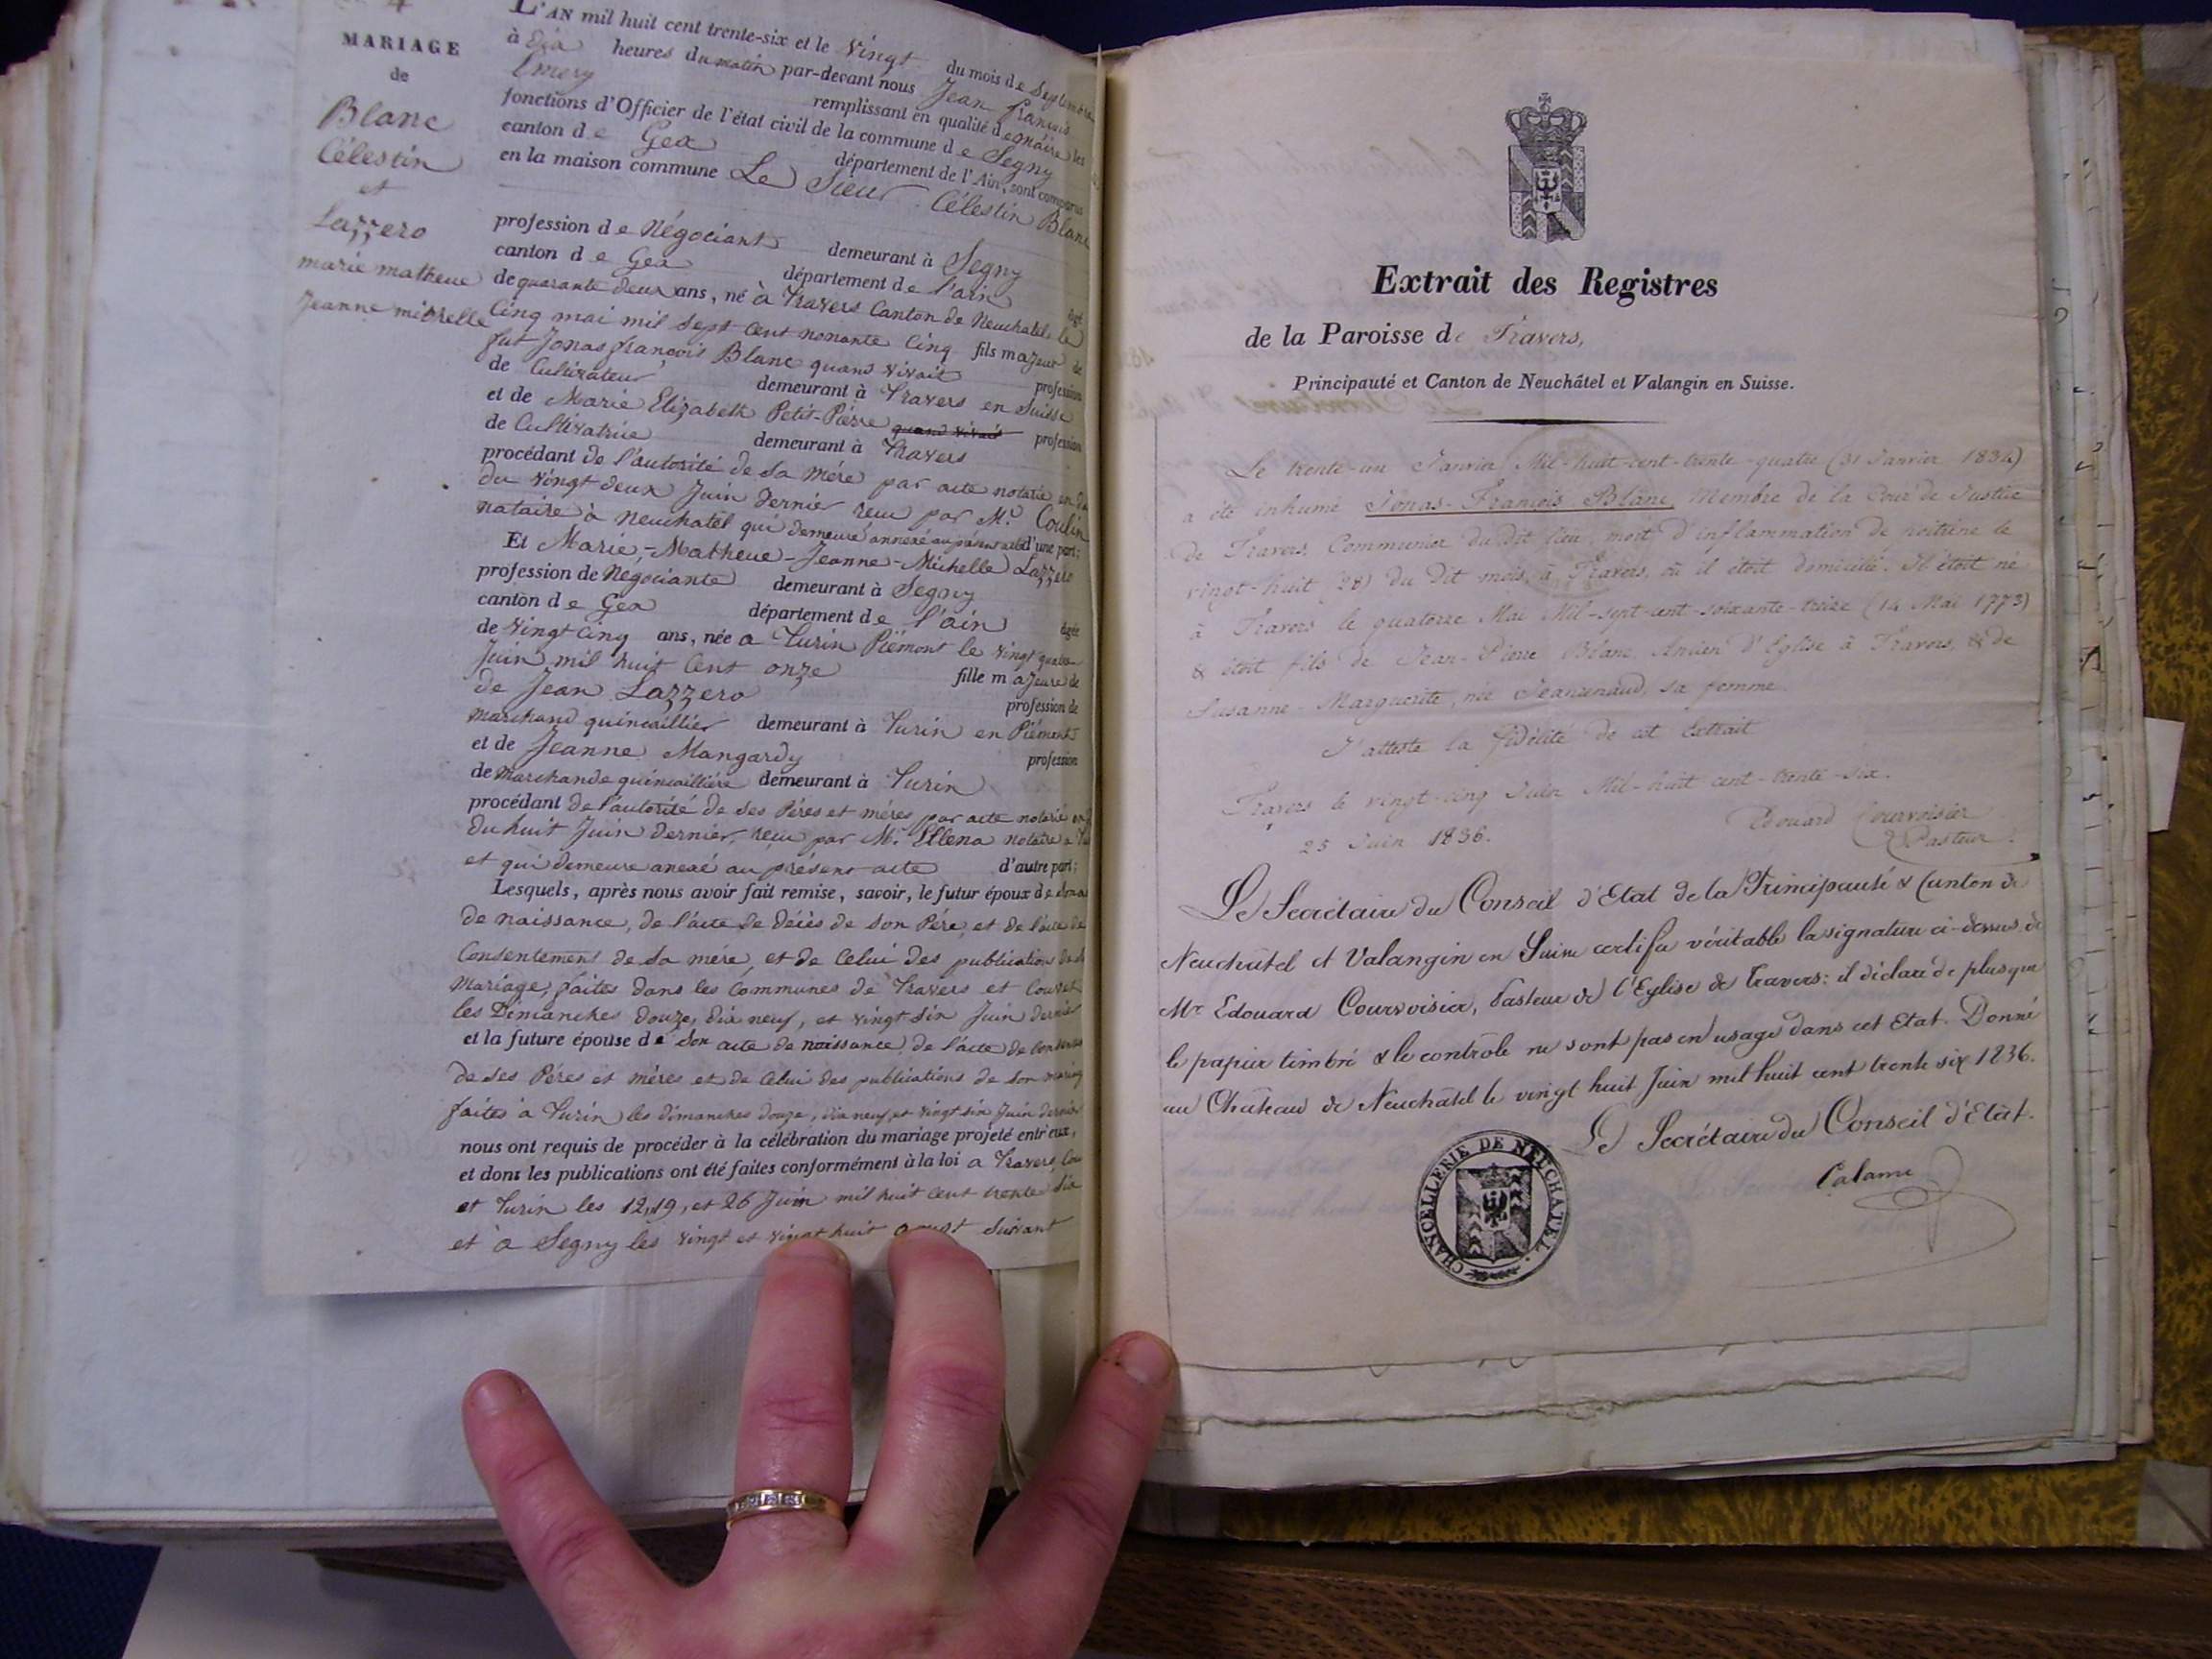 4
MARIAGE
de
Blanc
Célestin
et
Lazzero
marie matheue
Jeanne michelle
L'AN mil huit cent trente-six et le Vingt du mois de Septembre
à Dix heures du matin par-devant nous Jean françois
Emery remplissant en qualité de maire les
fonctions d'Officier de l'état civil de la commune de Segny
canton de Gex département de l'Ain, sont comparus
en la maison commune Le Sieur Célestin Blanc
profession de Négociant demeurant à Segny
canton de Gex département de l'ain âgé
de quarante deux ans, né à Travers Canton de Neuchatel le
Cinq mai mil sept cent nonante Cinq fils majeur de
fut Jonas françois Blanc quand vivait profession
de Cultivateur demeurant à Travers en Suisse
et de Marie Elizabeth Petit-Pierre quand vivait profession
de Cultivatrice demeurant à Travers
procédant de l'autorité de sa mère par acte notarié en
du vingt deux Juin dernier recu par Mr. Coulin
notaire à Neuchatel qui demeure annexé au présent acte d'une part;
Et Marie-Matheue-Jeanne-Michelle Lazzero
profession de Négociante demeurant à Segny
canton de Gex département de l'ain âgée
de vingt cinq ans, née a Turin Piémont le vingt quatre
Juin mil huit Cent onze fille majeure de
de Jean Lazzero profession de
marchand quincaillier demeurant à Turin en Piémont
et de Jeanne Mangardy profession
de Marchande quincaillière demeurant à Turin
procédant de l'autorité de ses Péres et méres par acte notarié en
du huit Juin dernier, recu par Mr. Ellena notaire a
et qui demeure anexé au présent acte d'autre part;
Lesquels, après nous avoir fait remise, savoir, le futur époux de son a
de naissance, de l'acte de décès de son Père, et de l'acte de
Consentement de sa mère, et de Celui des publications de
Mariage, faites dans les Communes de Travers et Couvet
les Dimanches douze, dix neuf, et vingt six Juin dernier
et la future épouse de son acte de naissance, de l'acte de
de ses Péres et méres et de Celui des publications de son mariag
faites à Turin les dimanches douze, dix neuf et vingt six Juin dernier
nous ont requis de procéder à la célébration du mariage projeté entr'eux,
et dont les publications ont été faites conformément à la loi a Travers, Cou
et Turin les 12, 19, et 26 Juin mil huit cent trente six
et à Segny les vingt et vingt huit aoust suivant
Extrait des Registres
de la Paroisse de Travers,
Principauté et Canton de Neuchâtel et Valangin en Suisse.
Le trente-un Janvier Mil-huit-cent-trente-quatre (31 Janvier 1834)
a été inhumé Jonas-François Blanc, Membre de la Cour de Justice
de Travers, Communier du dit lieu, mort d'inflammation de poitrine le
vingt-huit (28) du dit mois, à Travers, où il étoit domicilié. Il étoit né
à Travers le quatorze Mai Mil-sept-cent-soixante-treize (14 Mai 1773)
& étoit fils de Jean-Pierre Blanc, Ancien d'Eglise à Travers, & de
Susanne-Marguerite, née Jeanrenaud, sa femme.
J'atteste la fidélité de cet Extrait
Travers le vingt-cinq Juin Mil-huit cent-trente-six.
25 Juin 1836.
Edouard Courvoisier
Pasteur.
Le Secrétaire du Conseil d'Etat de la Principauté & Canton de
Neuchâtel et Valangin en Suisse certifie véritable la signature ci-dessus de
Mr. Edouard Courvoisier, Pasteur de l'Eglise de Travers: il déclare de plus que
le papier timbré & le contrôle ne sont pas en usage dans cet Etat. Donné
au Château de Neuchâtel le vingt huit Juin mil huit cent trente six 1836.
Le Secrétaire du Conseil d'Etat.
Calame
CHANCELLERIE DE NEUCHATEL.